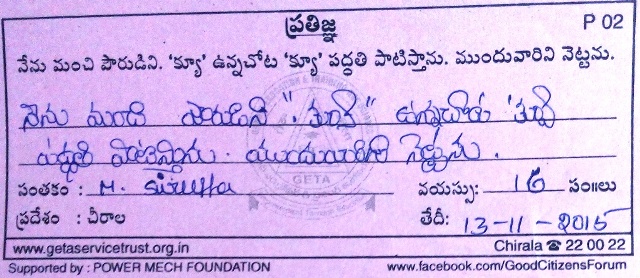 ప్రతిజ్ఞ
P 02
నేను మంచి పౌరుడిని. 'క్యూ' ఉన్నచోట 'క్యూ' పద్ధతి పాటిస్తాను. ముందువారిని నెట్టను.
నేను మంచి పౌరుడిని "క్యూ" ఉన్నచోట 'క్యూ'
పద్ధతి పాటిస్తాను. ముందువారిని నెట్టను.
GETA
సంతకం : M. వయస్సు: 16 సం॥లు
ప్రదేశం : చీరాల తేదీ: 13-11-2015
www.getaservicetrust.org.in Chirala ☎ 22 00 22
Supported by : POWER MECH FOUNDATION www.facebook.com/GoodCitizensForum